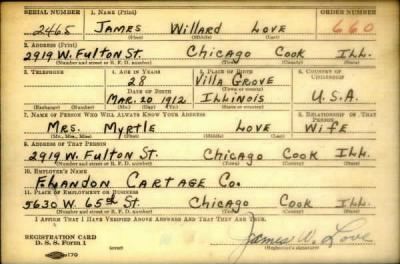 SERIAL NUMBER 1. NAME (Print) ORDER NUMBER
2465 JAMES Willard LOVE 660
(First) (Middle) (Last)
2. ADDRESS (Print)
2919 W. Fulton St. Chicago Cook ILL.
(Number and street or R. F. D. number) (Town) (County) (State)
3. TELEPHONE 4. AGE IN YEARS 5. PLACE OF BIRTH 6. COUNTRY OF CITIZENSHIP
28 VILLA GROVE
DATE OF BIRTH
MAR. 20 1912 ILLINOIS U.S.A.
(Exchange) (Number) (Mo.) (Day) (Yr.) (State or country)
7. NAME OF PERSON WHO WILL ALWAYS KNOW YOUR ADDRESS 8. RELATIONSHIP OF THAT PERSON
MRS. Myrtle LOVE Wife
(Mr., Mrs., Miss) (First) (Middle) (Last)
9. ADDRESS OF THAT PERSON
2919 W. Fulton St. Chicago Cook ILL.
(Number and street or R. F. D. number) (Town) (County) (State)
10. EMPLOYER'S NAME
CARTAGE Co.
11. PLACE OF EMPLOYMENT OR BUSINESS
5630 W. 65th St. Chicago Cook ILL.
(Number and street or R. F. D. number) (Town) (County) (State)
I AFFIRM THAT I HAVE VERIFIED ABOVE ANSWERS AND THAT THEY ARE TRUE.
REGISTRATION CARD
D. S. S. Form 1 (over) James W. Love